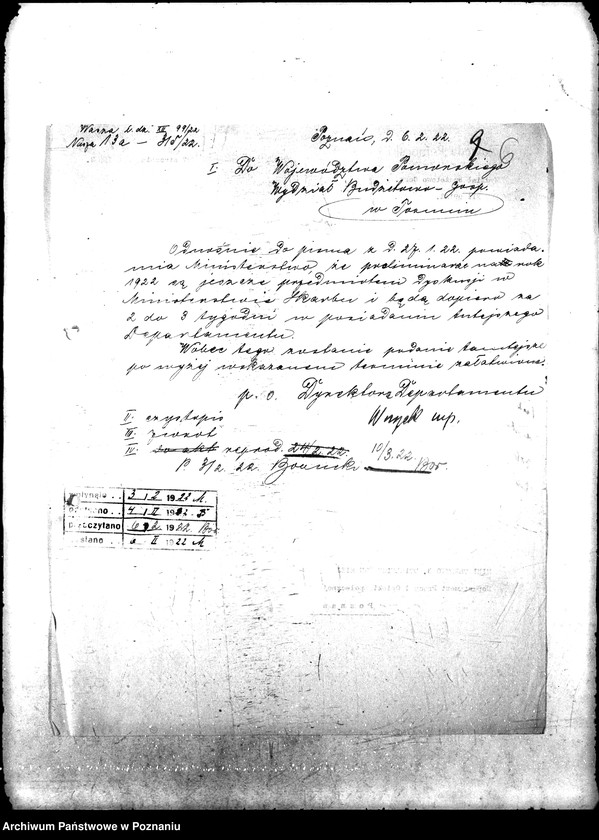 Wasza l. dz. III 99/22
Nasza 13a – 315/22.
Poznań, d. 6. 2. 22.
I. Do Województwa Pomorskiego
Wydział Budżetowo-Gosp.
w Toruniu
Odnośnie do pisma z d. 27. 1. 22. powiada-
mia Ministerstwo, że preliminarze na rok
1922 są jeszcze przedmiotem dyskusji w
Ministerstwie Skarbu i będą dopiero za
2 do 3 tygodni w posiadaniu tutejszego
Departamentu.
Wobec tego zostanie podanie tamtejsze
po wyżej wskazanem terminie załatwione.
p. o. Dyrektora Departamentu
II. czystopis
III. zwrot
IV. do akt reprod. 24/2. 22. 10/3. 22
P 3/2. 22.
3 / 2 1922
4 / II 1922
przeczytano 6 / 2 1922
II 1922
Poznań
Archiwum Państwowe w Poznaniu